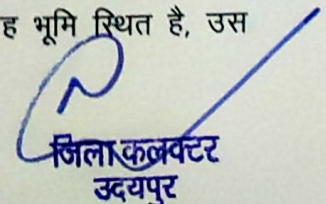 ह भूमि स्थित है, उस
जिला कलक्टर
उदयपुर